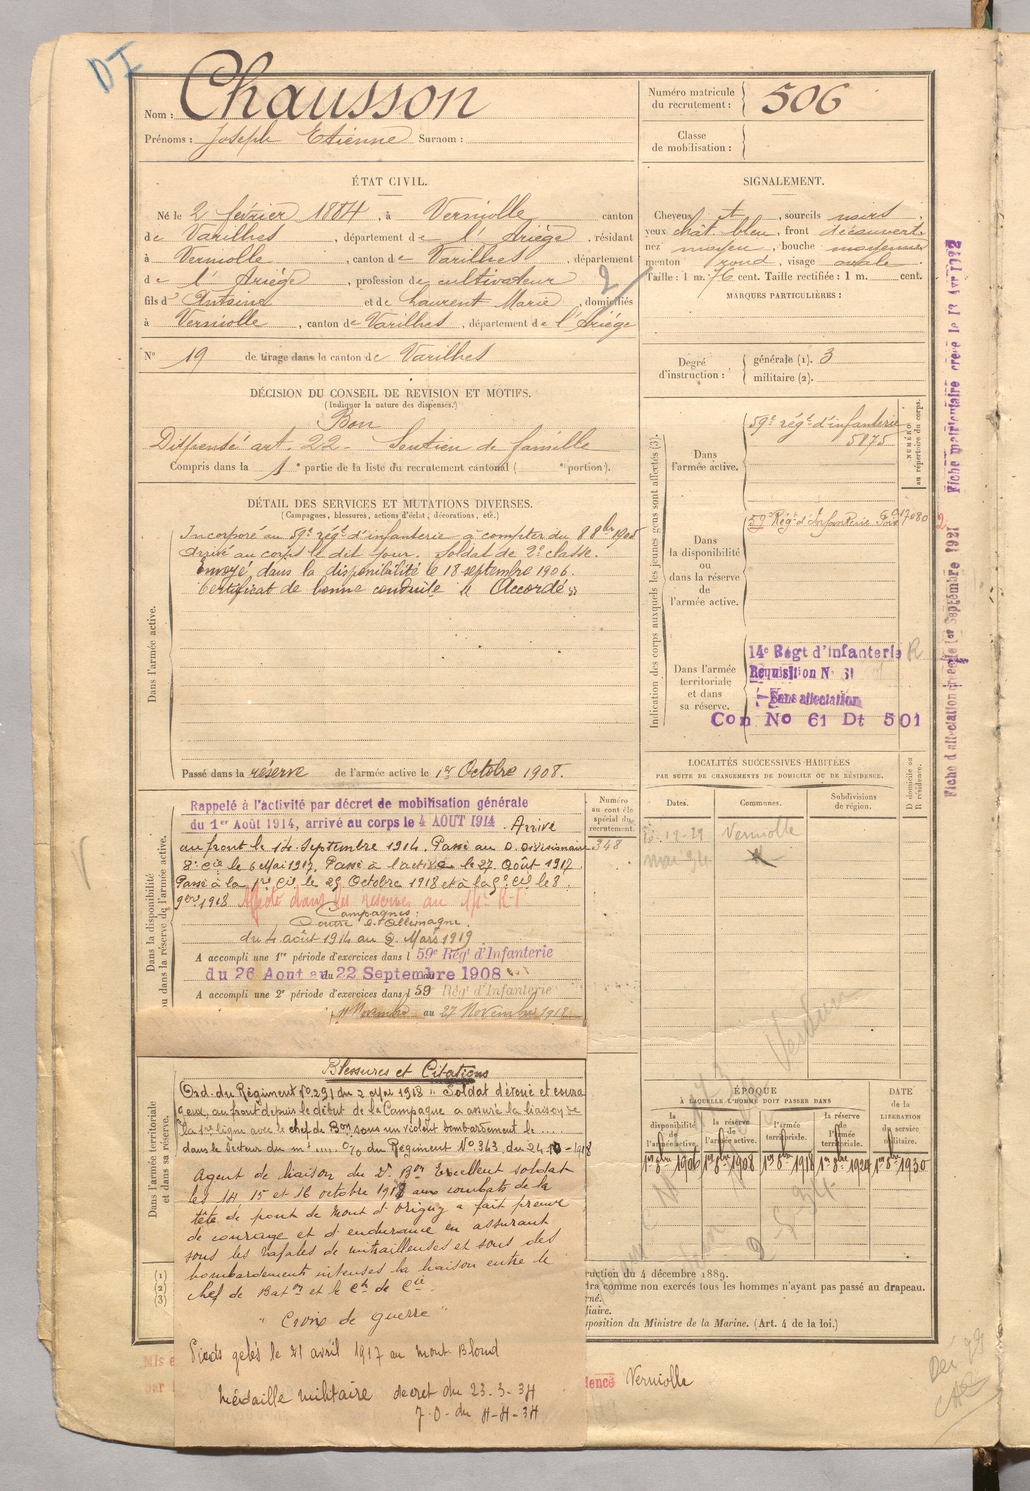 DI
Nom : Chausson
Prénoms : Joseph Etienne Surnom :
Numéro matricule
du recrutement : 506
Classe
de mobilisation :
ÉTAT CIVIL.
Né le 2 février 1884, à Verniolle canton
de Varilhes, département de l'Ariège, résidant
à Verniolle, canton de Varilhes, département
de l'Ariège, profession de cultivateur
fils d'Antoine et de Laurent Marie, domiciliés
à Verniolle, canton de Varilhes, département de l'Ariège
2
N° 19 de tirage dans le canton de Varilhes
SIGNALEMENT.
Cheveux et, sourcils noirs
yeux chât. bleu, front découvert
nez moyen, bouche moyenne
menton rond, visage ovale
Taille : 1 m. 76 cent. Taille rectifiée : 1 m. cent.
MARQUES PARTICULIÈRES :
Degré
d'instruction :
générale (1). 3
militaire (2).
DÉCISION DU CONSEIL DE REVISION ET MOTIFS.
(Indiquer la nature des dispenses.)
Bon
Dispensé art. 22. Soutien de famille
Compris dans la 1e partie de la liste du recrutement cantonal ( e portion).
DÉTAIL DES SERVICES ET MUTATIONS DIVERSES.
(Campagnes, blessures, actions d'éclat, décorations, etc.)
Dans l'armée active.
Incorporé au 59e rég.t d'infanterie à compter du 8 8bre 1905
Arrivé au corps le dit jour. Soldat de 2e classe.
Envoyé dans la disponibilité le 18 septembre 1906.
Certificat de bonne conduite "Accordé"
Passé dans la réserve de l'armée active le 1er Octobre 1908.
Indication des corps auxquels les jeunes gens sont affectés (3).
NUMÉRO
au répertoire du corps.
Dans
l'armée active.
59e rég.t d'infanterie
5875
Dans
la disponibilité
ou
dans la réserve
de
l'armée active.
59e Rég.t d'Infanterie
Dans l'armée
territoriale
et dans
sa réserve.
14e Régt d'infanterie
Réquisition N° 61
Sans affectation
Con No 61 Dt 501
Fiche d'affectation créée le 1er Septembre 1921
Fiche matriculaire créée le
LOCALITÉS SUCCESSIVES HABITÉES
PAR SUITE DE CHANGEMENTS DE DOMICILE OU DE RÉSIDENCE.
Dates.
Communes.
Subdivisions
de région.
D domicile ou
R résidence.
Verniolle
Dans la disponibilité
ou dans la réserve de l'armée active.
Numéro
au contrôle
spécial du
recrutement.
348
Rappelé à l'activité par décret de mobilisation générale
du 1er Août 1914, arrivé au corps le 4 AOUT 1914. Arrivé
au front le 14 Septembre 1914. Passé au D. Divisionnaire
8e cie le 6 Mai 1917. Passé à l'active le 27 Août 1917
Passé à la 1re Cie le 25 Octobre 1918 et à la 9e Cie le 8
9bre 1918 Affecté dans les réserves au 14e R.I
Campagnes :
Contre l'Allemagne
du 4 août 1914 au 2 Mars 1919
A accompli une 1re période d'exercices dans l 59e Rég.t d'Infanterie
du 26 Aout au 22 Septembre 1908
A accompli une 2e période d'exercices dans l 59 Rég.t d'Infanterie
Novembre au 27 Novembre
Blessures et Citations
Ord. du Régiment N° 291 du 2 Mai 1918 "Soldat dévoué et coura
geux, au front depuis le début de la Campagne a assuré la liaison de
la 1re ligne avec le chef de Bon sous un violent bombardement le ....
dans le secteur du mt .... O/ du Régiment N° 363 du 24-10-1918
Agent de liaison du 2e Bon Excellent soldat
les 14 15 et 16 octobre 1918 aux combats de la
tête de pont de Mont d'Origny a fait preuve
de courage et d'endurance en assurant
sous les rafales de mitrailleuses et sous des
bombardements intenses la liaison entre le
chef de Baton et le Ct de Cie
"Croix de guerre"
Pieds gelés le 21 avril 1917 au Mont Blond
Médaille militaire décret du 23-3-34
J.O. du 4-4-34
Dans l'armée territoriale
et dans sa réserve.
(1)
(2)
(3)
ÉPOQUE
À LAQUELLE L'HOMME DOIT PASSER DANS
la
disponibilité
de
l'armée active.
la réserve
de
l'armée active.
l'armée
territoriale.
la réserve
de
l'armée
territoriale.
DATE
de la
LIBÉRATION
du service
militaire.
1er 8bre 1906
1er 8bre 1908
1er 8bre 1918
1er 8bre 1924
1er 8bre 1930
Verdun
ruction du 4 décembre 1889.
dra comme non exercés tous les hommes n'ayant pas passé au drapeau.
rné.
liaire.
sposition du Ministre de la Marine. (Art. 4 de la loi.)
dence Verniolle
Mis e
par l